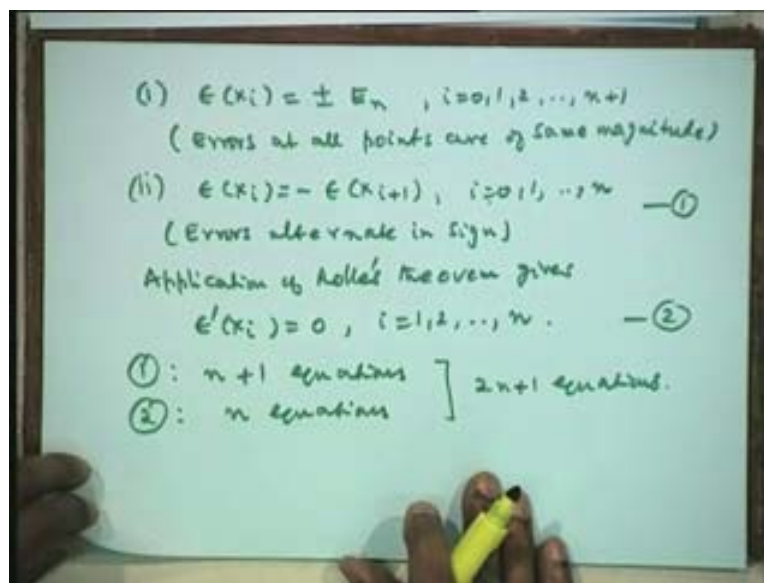 (i) ε(xi) = ± En , i=0,1,2,..,n+1
(Errors at all points are of same magnitude)
(ii) ε(xi) = - ε(xi+1), i=0,1,..,n —①
(Errors alternate in sign)
Application of Rolle's theorem gives
ε'(xi) = 0 , i=1,2,..,n. —②
①: n+1 equations
2n+1 equations.
②: n equations